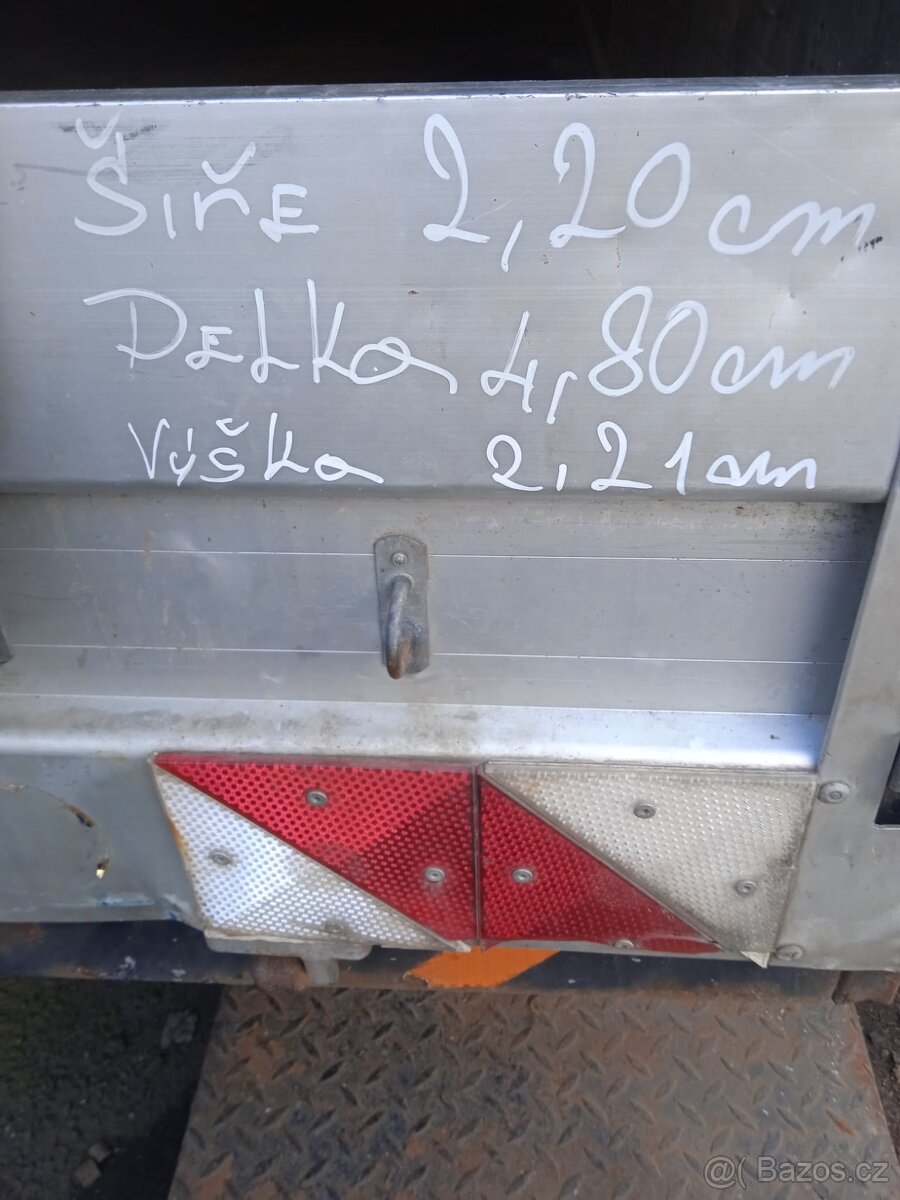 Šiře 2,20 cm
Delka 4,80 cm
Výška 2,21 cm
@( Bazos.cz